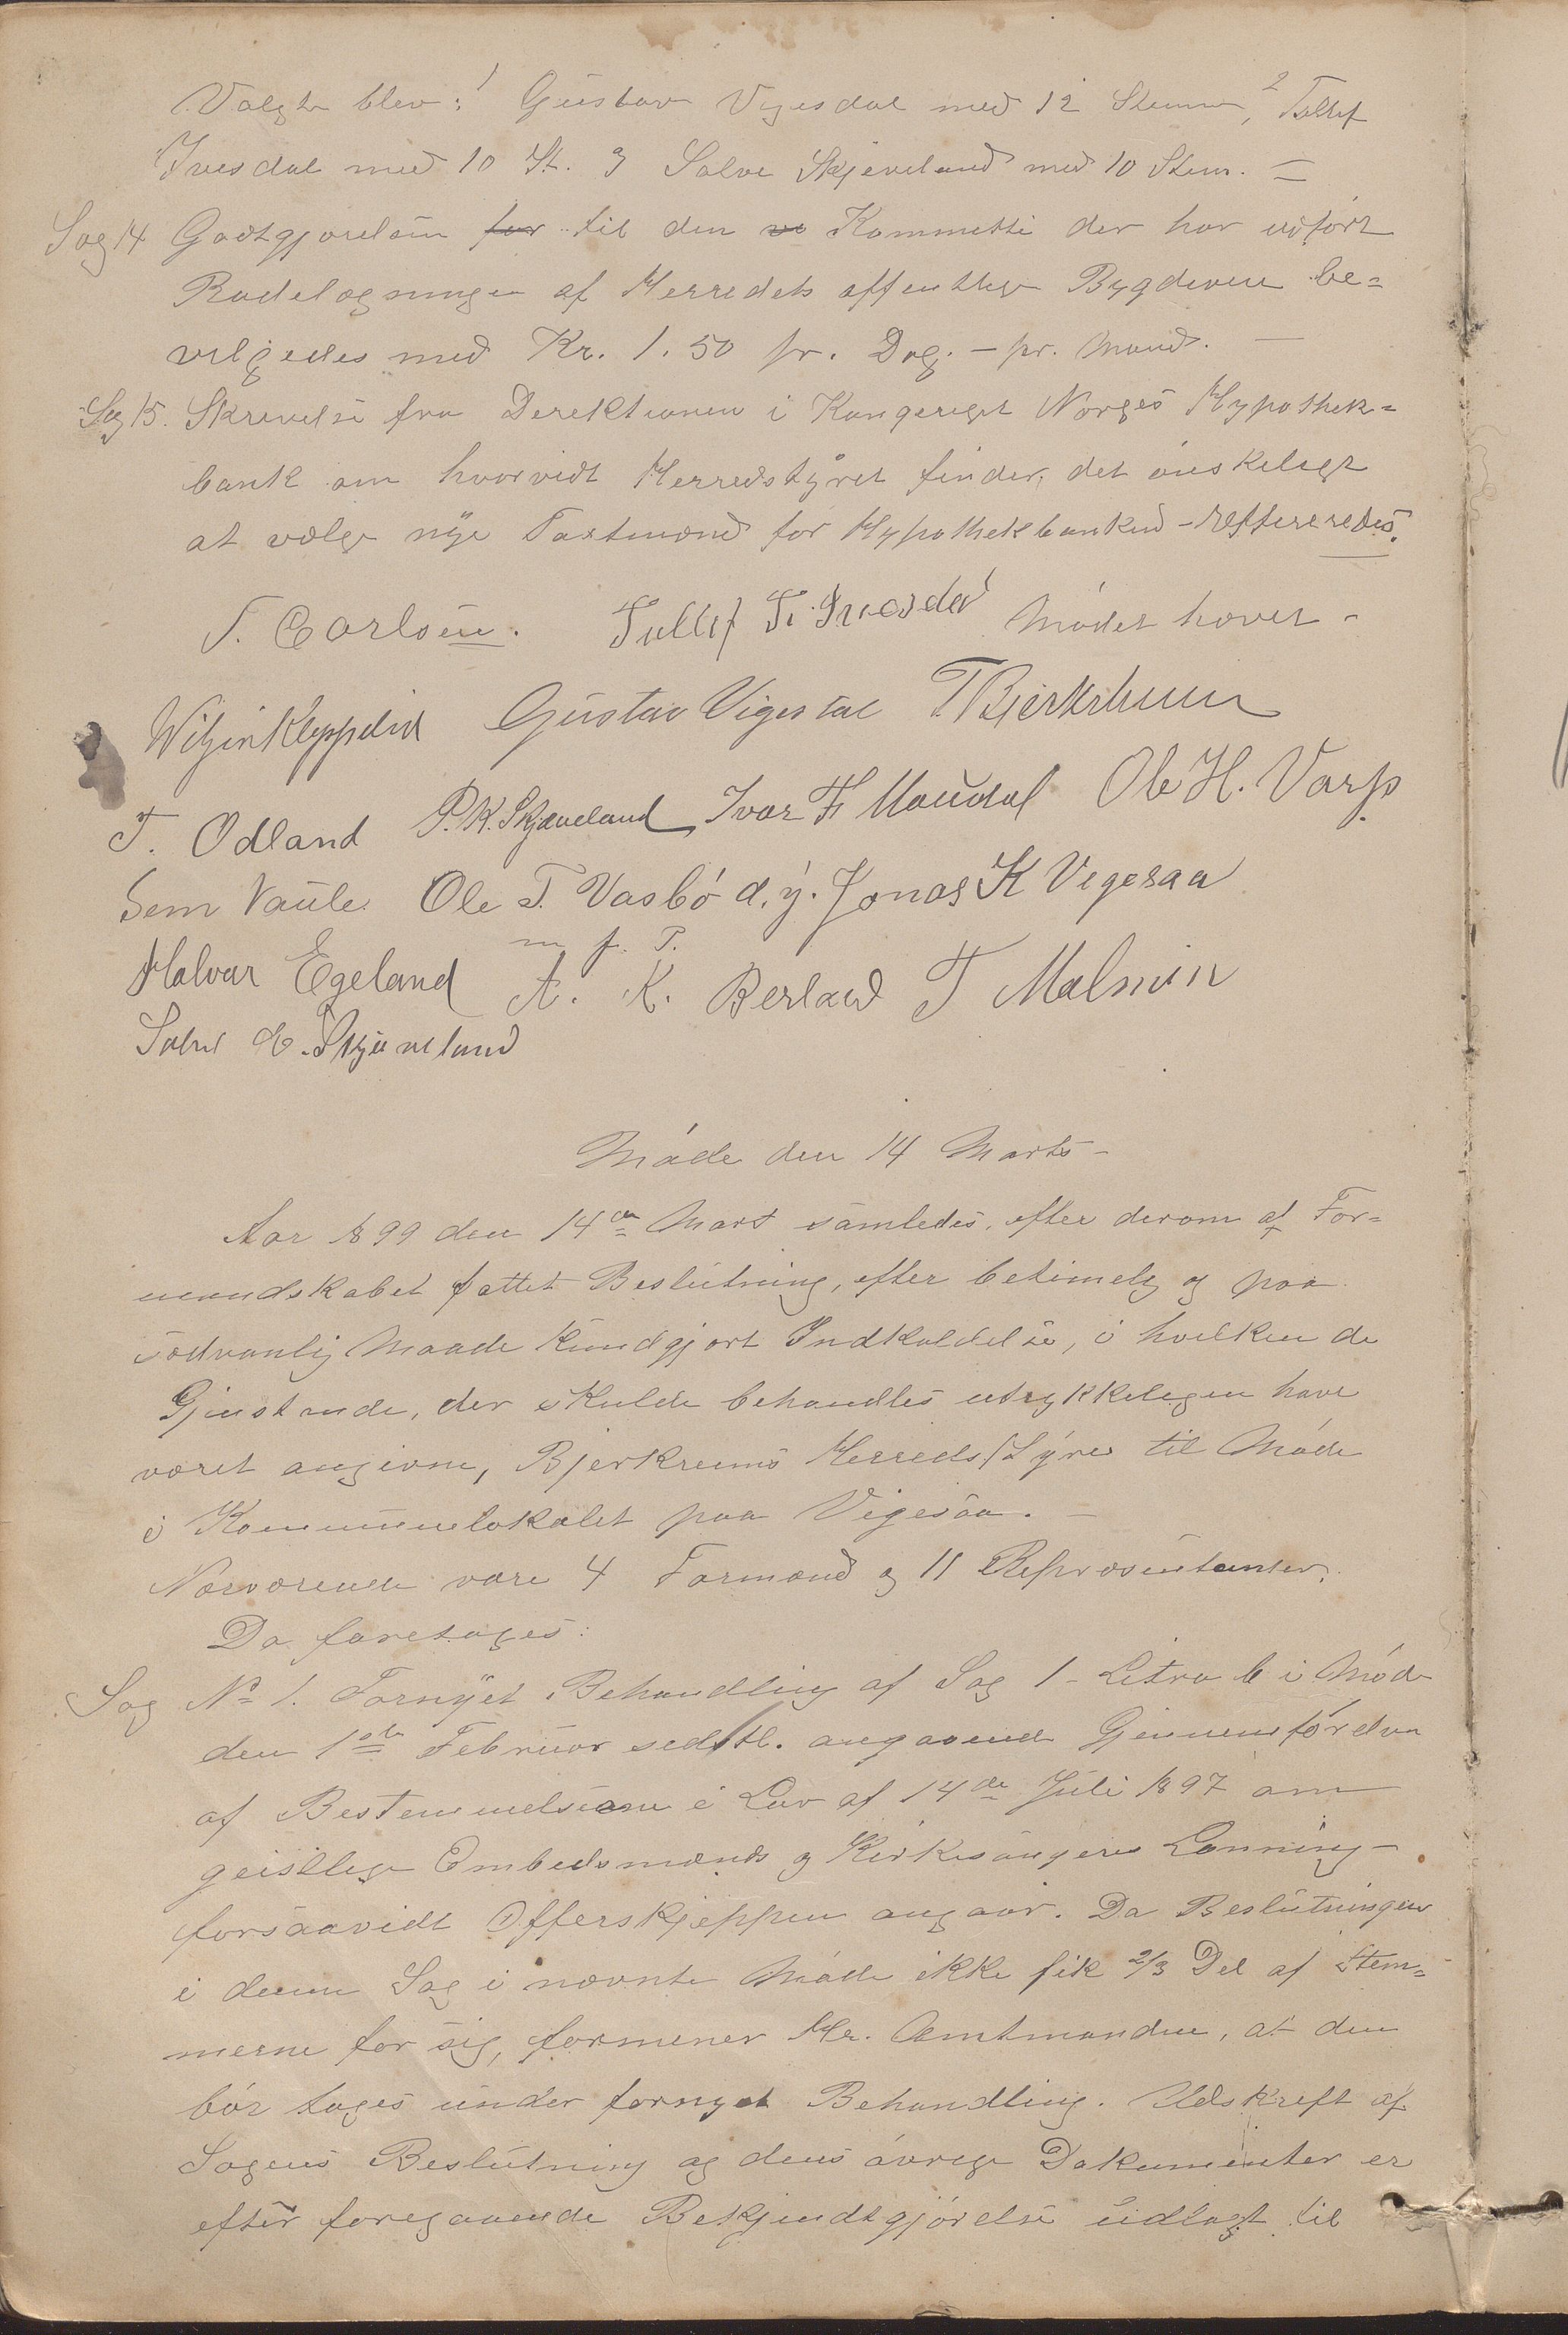 Valgte blev: 1 Gustav Vigesdal med 12 Stemmer, 2 Tollef
Ivesdal med 10 St. 3 Salve Skjeveland med 10 Stem. =
Sag 14 Godtgjørelsen for til den ve Kommette der har udført
Rodelægningen af Herredets offentlige Bygdeveie be=
vilgedes med Kr. 1.50 pr. Dag. - pr. Mand. -
Sag 15. Skrivelse fra Derektionen i Kongeriget Norges Hypothek=
bank om hvorvidt Herredstyret finder, det ønskeligt
at vælge nye Taxtmænd for Hypothekbanken - Reftereredes.
T. Carlsen. Tollef T. Ivesdal Mødet hævet -
Gustav Vigesdal T Bjerkreim
T. Odland P.K. Skjæveland Ivar F Maudal Ole H. Varp
Sem Vaule Ole T. Vasbø d.y. Jonas K Vegesaa
m f. P.
Halvar Egeland A. K. Berland T Malmin
Salve E. Skjæveland
Møde den 14 Marts -
Aar 1899 den 14de Mart samledes, efter derom af For=
mandskabet fattet Beslutning, efter betimelig og paa
sædvanlig Maade Kundgjort Indkaldelse, i hvilken de
Gjenstande, der skulde behandles udtrykkelegen have
været angivne, Bjerkreims Herredstyre til Møde
i Kommunelokalet paa Vigesaa. -
Nærværende vare 4 Formænd og 11 Repræsentanter.
Da foretoges:
Sag No 1. Fornyet Behandling af Sag 1 - Litra b i Møde
den 1ste Februar sedstl. angaaende Gjennemførelsen
af Bestemmelserne i Lov af 14de Juli 1897 om
geistlige Embedsmænds og Kirkesangeres Lønning -
forsaavidt Offerskjeppen angaar. Da Beslutningen
i denne Sag i nævnte Møde ikke fik 2/3 Del af Stem=
merne for sig, formener Hr. Amtmanden, at den
bør tages under fornyet Behandling. Udskreft af
Sagens Beslutning og dens øvrige Dokumenter er
efter foregaaende Bekjendtgjørelse udlagt til